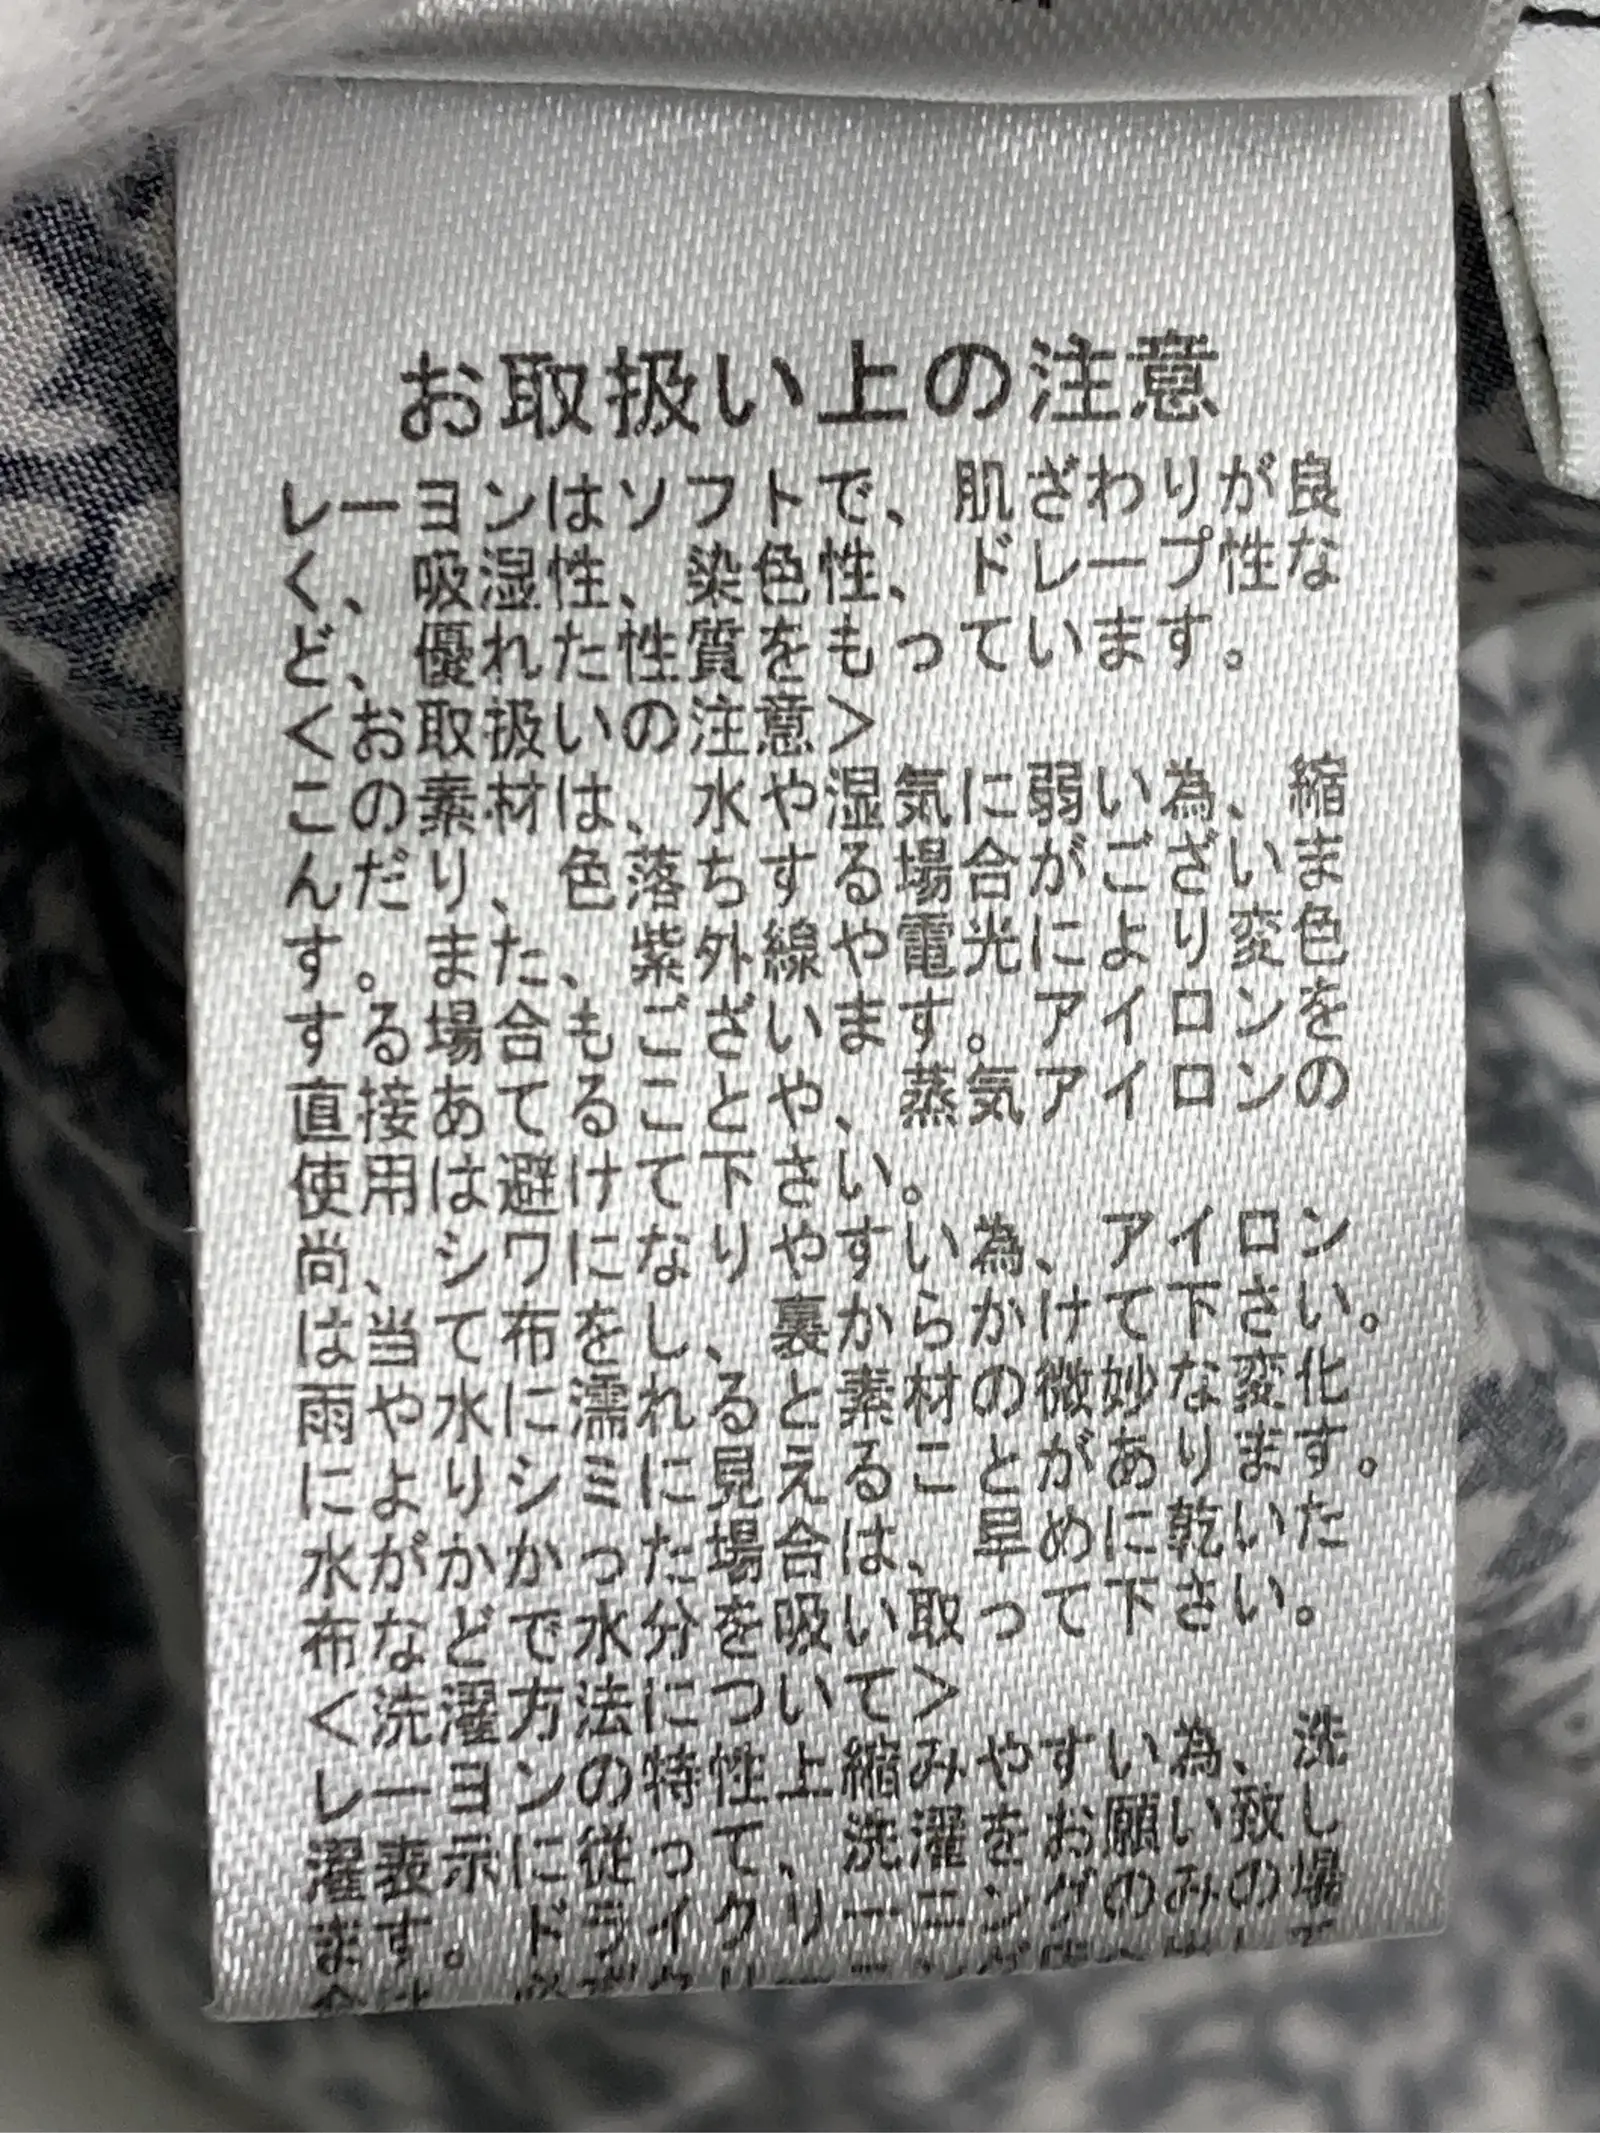 お取扱い上の注意
レーヨンはソフトで、肌ざわりが良
く、吸湿性、染色性、ドレープ性な
ど、優れた性質をもっています。
＜お取扱いの注意＞
この素材は、水や湿気に弱い為、縮
んだり、色落ちする場合がございま
す。また、紫外線や電光により変色
する場合もございます。アイロンを
直接あてることや、蒸気アイロンの
使用は避けて下さい。
尚、シワになりやすい為、アイロン
は当て布をし、裏からかけて下さい。
雨や水に濡れると素材の微妙な変化
によりシミに見えることがあります。
水がかかった場合は、早めに乾いた
布などで水分を吸い取って下さい。
＜洗濯方法について＞
レーヨンの特性上縮みやすい為、洗
濯表示に従って、洗濯をお願い致し
ます。ドライクリーニングのみの場